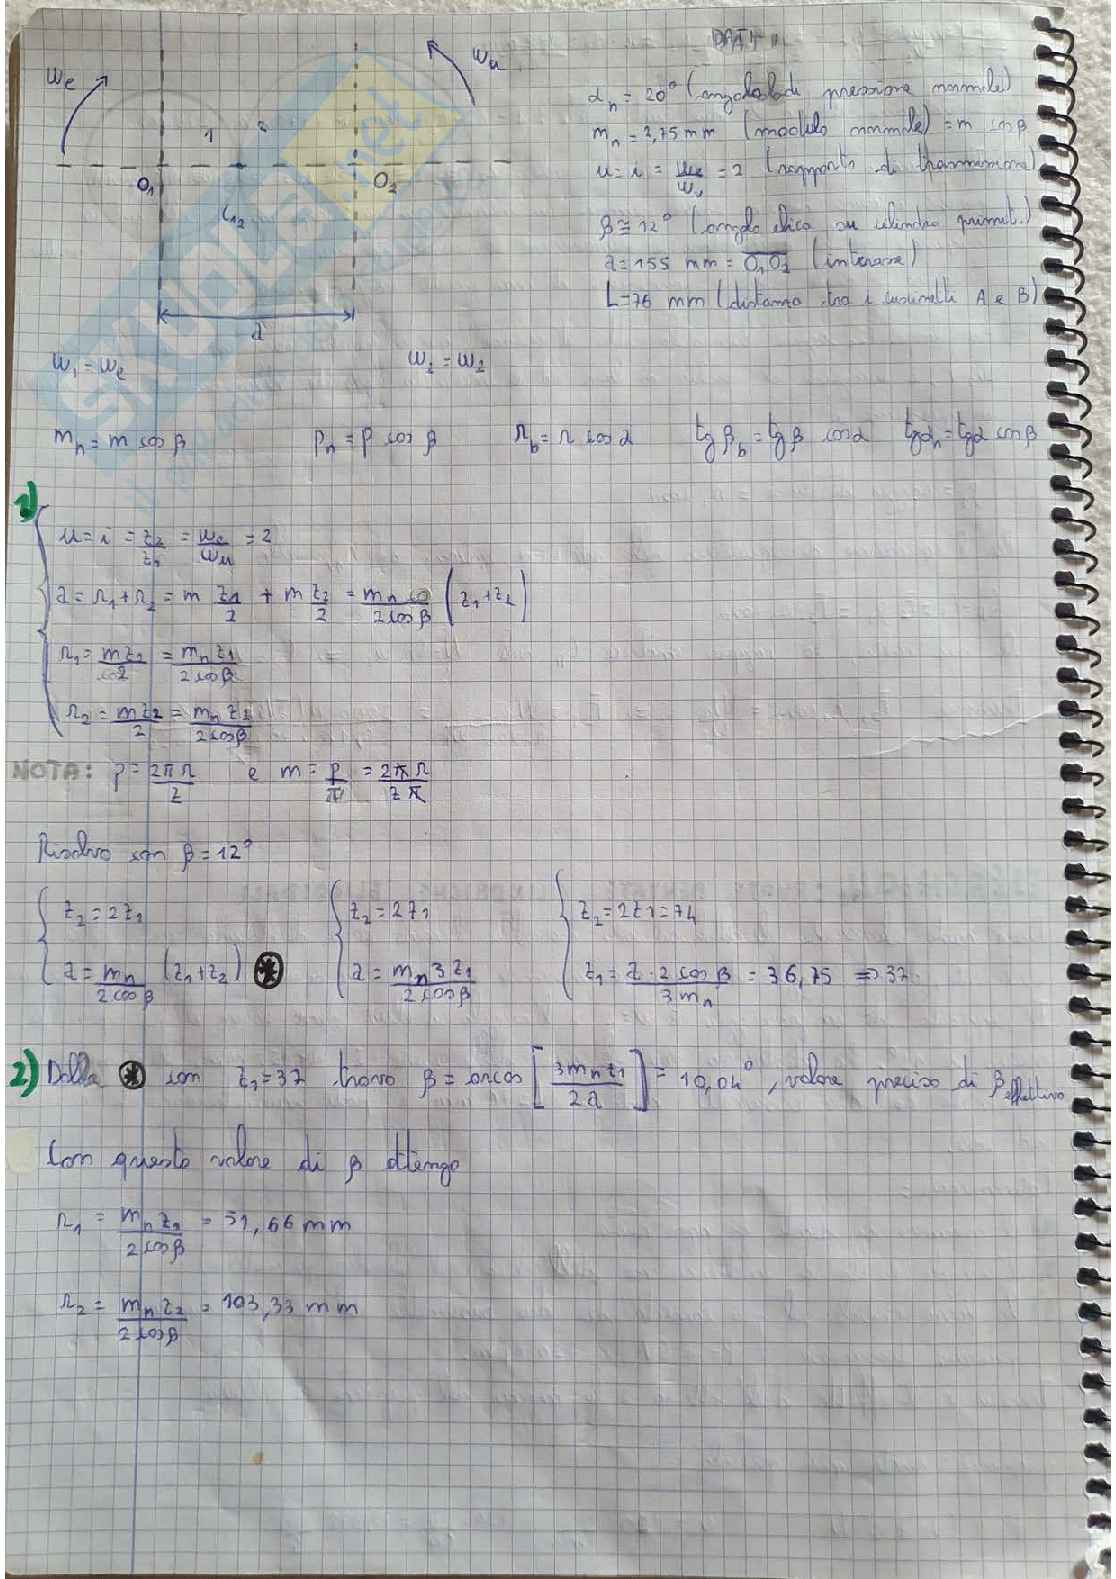 DATI
ωe
ωu
αn = 20° (angolo di pressione normale)
mn = 2,75 mm (modulo normale) = m cosβ
1 2
u = i = ωe/ωu = 2 (rapporto di trasmissione)
O1 O2
C12
β ≅ 12° (angolo elica su cilindro primit.)
a = 155 mm = O1O2 (interasse)
L = 76 mm (distanza tra i cuscinetti A e B)
a
ω1 = ωe ωi = ω2
mn = m cosβ pn = p cosβ rb = r cosα tgβb = tgβ cosα tgαn = tgα cosβ
1)
u = i = z2/z1 = ωe/ωu = 2
a = r1 + r2 = m z1/2 + m z2/2 = mn/2cosβ (z1+z2)
r1 = m z1/2 = mn z1/2cosβ
r2 = m z2/2 = mn z2/2cosβ
NOTA: p = 2πr/z e m = p/π = 2πr/zπ
Risolvo con β = 12°
z2 = 2z1 z2 = 2z1 z2 = 2z1 = 74
a = mn/2cosβ (z1+z2) * a = mn 3z1/2cosβ z1 = a·2cosβ/3mn = 36,75 ⇒ 37
2) Dalla * con z1 = 37 trovo β = arcos [3mn z1/2a] = 10,04°, valore preciso di βeffettivo
Con questo valore di β ottengo
r1 = mn z1/2cosβ = 51,66 mm
r2 = mn z2/2cosβ = 103,33 mm
SKUOLA.net